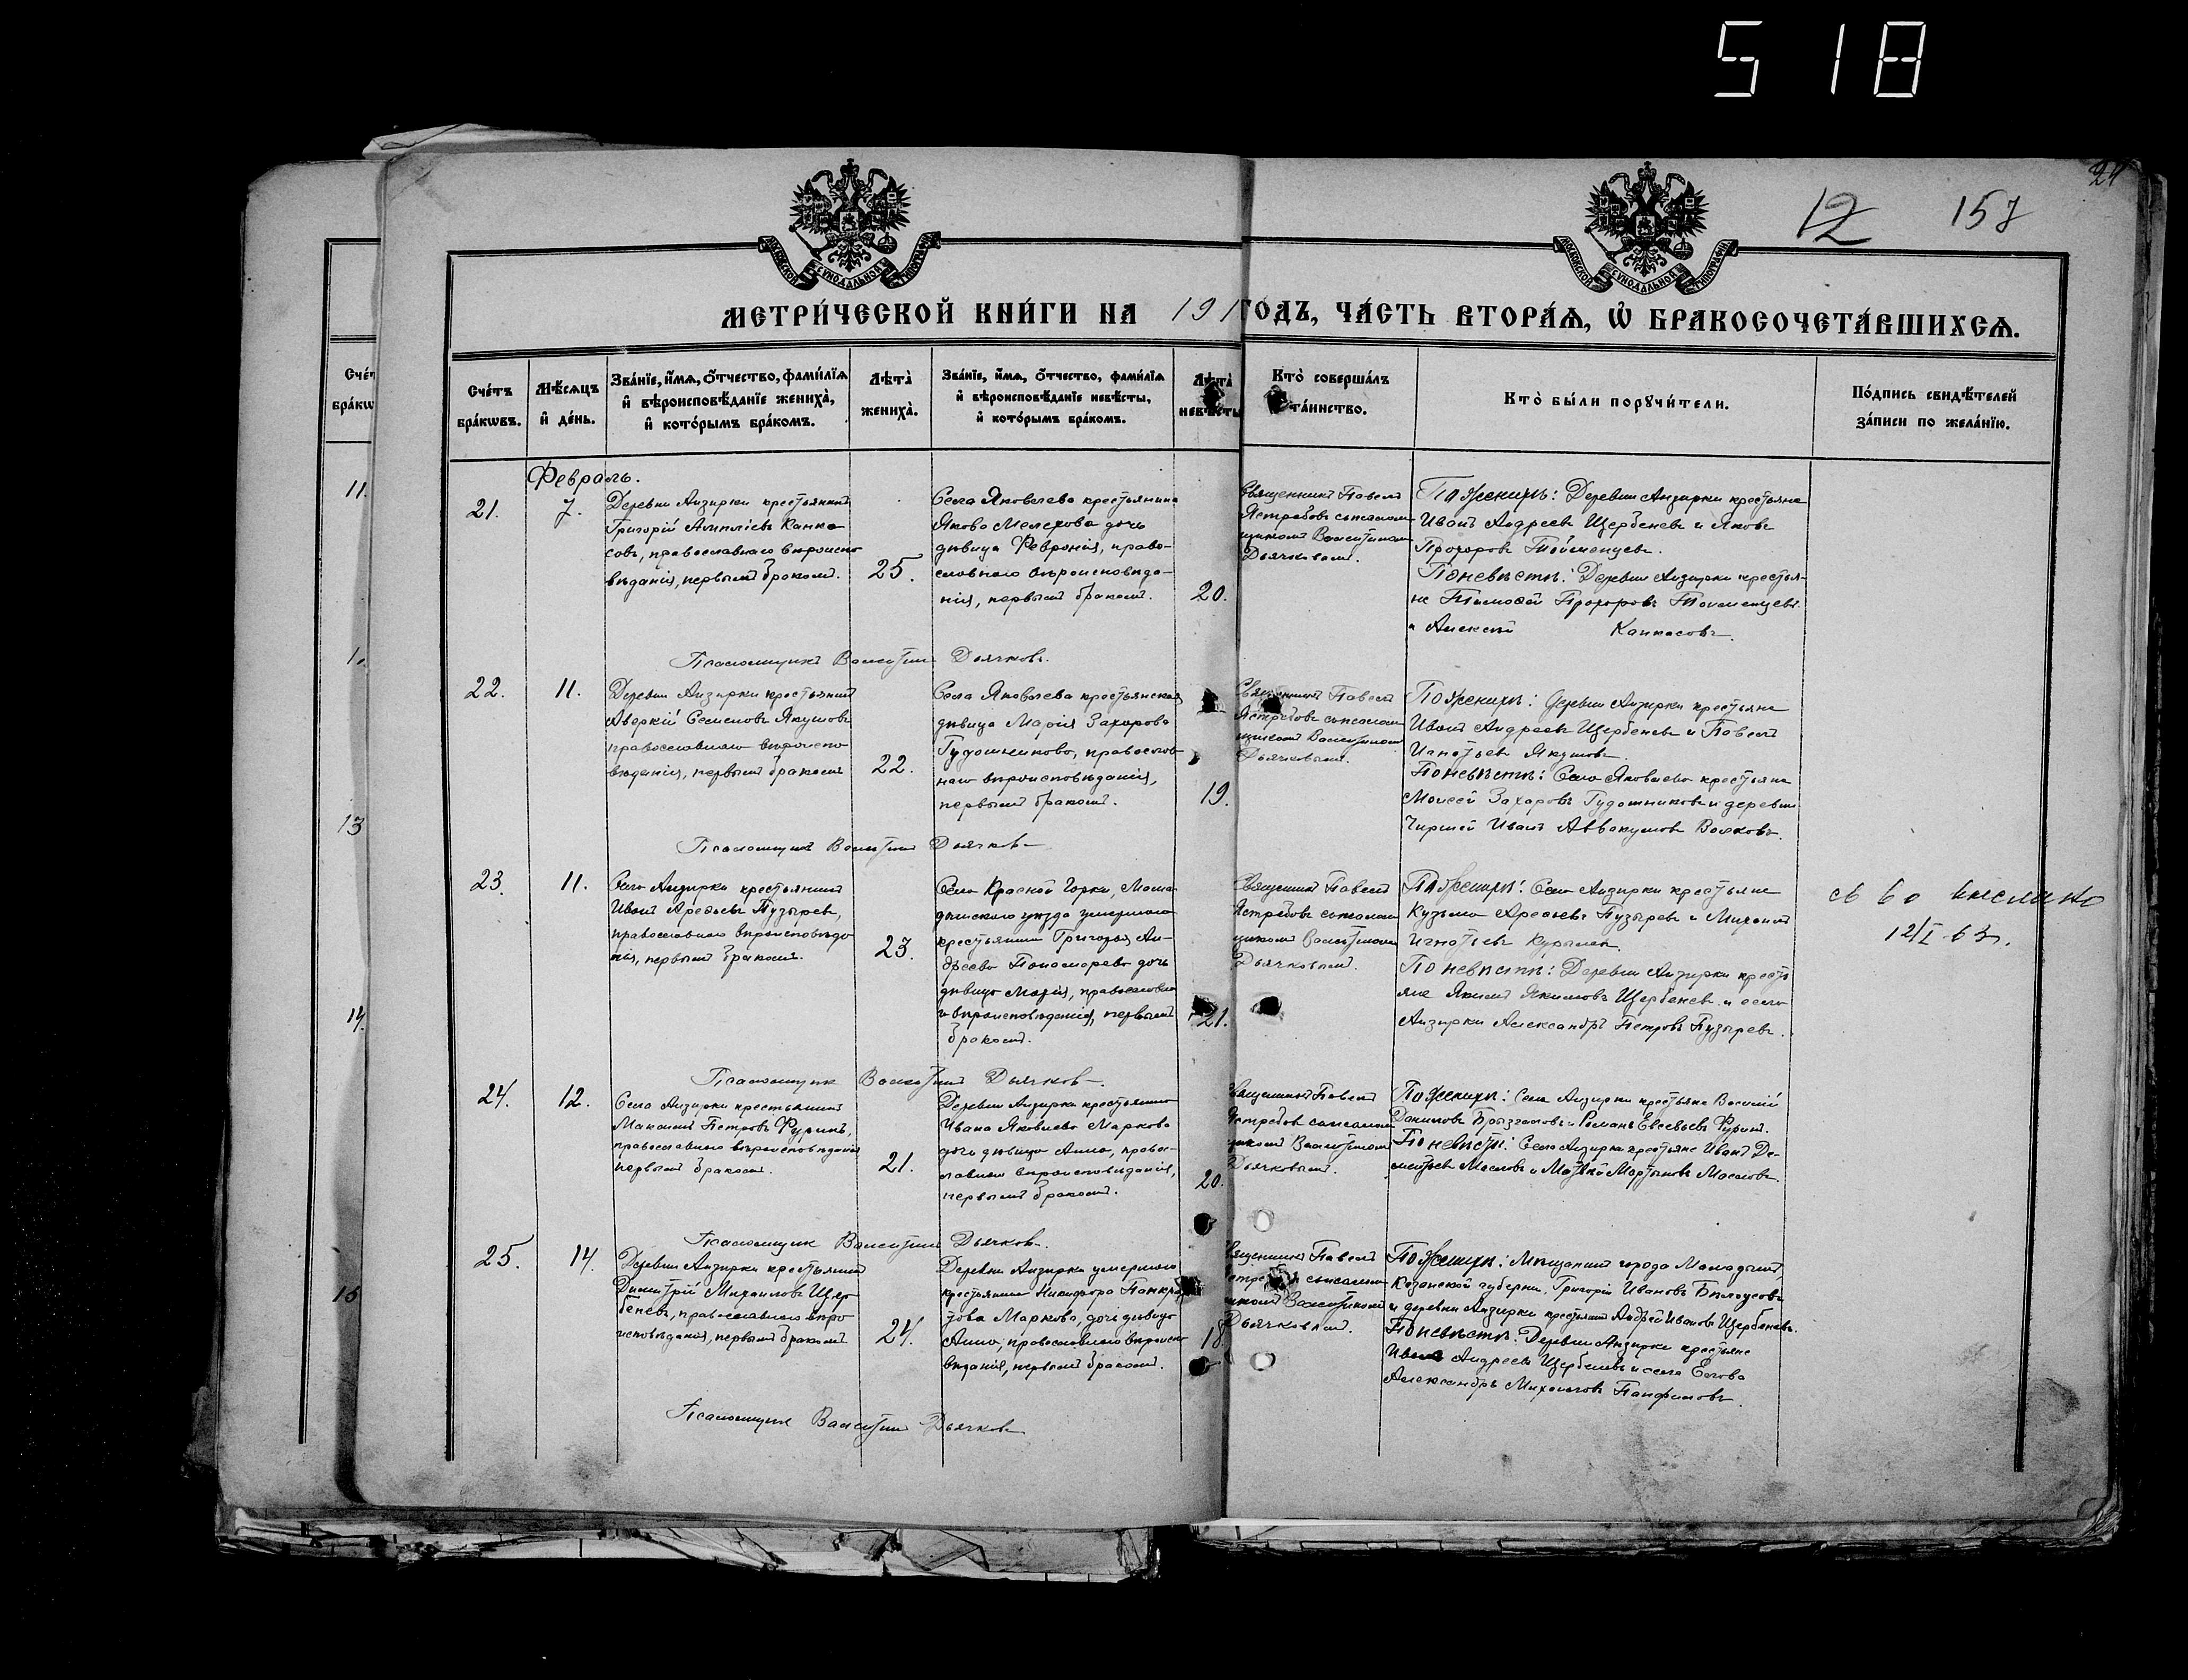 518
24
12 157
МОСКОВСКОЙ СУНОДАЛЬНОЙ ТИПОГРАФІИ
МОСКОВСКОЙ СУНОДАЛЬНОЙ ТИПОГРАФІИ
МЕТРИ́ЧЕСКОЙ КНИ́ГИ НА 191 ГОДЪ, ЧА́СТЬ ВТОРА́Ѧ, Ѡ БРАКОСОЧЕТА́ВШИХСѦ.
Сче́тъ бра́кѡвъ.
Мѣ́сѧцъ и҆ де́нь.
Зва́нїе, и҆́мѧ, ѻ҆́тчество, фами́лїѧ
и҆ вѣроисповѣ́данїе жениха̀,
и҆ кото́рымъ бра́комъ.
Лѣта̀ жениха̀.
Зва́нїе, и҆́мѧ, ѻ҆́тчество, фами́лїѧ
и҆ вѣроисповѣ́данїе невѣ́сты,
и҆ кото́рымъ бра́комъ.
Лѣта̀ невѣ́сты
Кто̀ соверша́лъ
та́инство.
Кто̀ бы́ли порꙋчи́тели.
По́дпись свидѣ́телей
за́писи по жела́нїю.
Февраль.
21.
7.
Деревни Анзирки крестьянинъ
Григорій
православнаго вѣроиспо
вѣданія, первымъ бракомъ.
25.
Села Яковлева крестьянина
Якова Мелехова дочь
дѣвица Февронія, право-
славнаго вѣроисповѣда-
нія, первымъ бракомъ.
20.
Священникъ Павелъ
Ястребовъ съ псалом
щикомъ Валентиномъ
Дьячковымъ.
По женихѣ: Деревни Анзирки крестьяне
Иванъ Андреевъ Щербеневъ и Яковъ
Прохоровъ
По невѣстѣ: Деревни Анзирки крестья-
не Тимофей Прохоровъ
и Алексѣй
Псаломщикъ Валентинъ Дьячковъ.
22.
11.
Деревни Анзирки крестьянинъ
Аверкій Семеновъ Якушовъ
православнаго вѣроиспо
вѣданія, первымъ бракомъ
22.
Села Яковлева крестьянская
дѣвица Марія Захарова
Гудошникова, православ
наго вѣроисповѣданія,
первымъ бракомъ.
19.
Священникъ Павелъ
Ястребовъ съ псалом
щикомъ Валентиномъ
Дьячковымъ.
По женихѣ: Деревни Анзирки крестьяне
Иванъ Андреевъ Щербеневъ и Павелъ
Игнатьевъ Якушовъ.
По невѣстѣ: Села Яковлева крестьяне
Моисей Захаровъ Гудошниковъ и деревни
Иванъ Аввакумовъ Волковъ.
Псаломщикъ Валентинъ Дьячковъ
23.
11.
Села Анзирки крестьянинъ
Иванъ Арефьевъ Пузыревъ,
православнаго вѣроисповѣда
нія, первымъ бракомъ.
23.
Села Красной Горки, Мама-
дышскаго уѣзда умершаго
крестьянина Григорія Ан-
дреева Пономарева дочь
дѣвица Марія, православна
го вѣроисповѣданія, первымъ
бракомъ.
21.
Священникъ Павелъ
Ястребовъ съ псалом
щикомъ Валентиномъ
Дьячковымъ.
По женихѣ: Села Анзирки крестьяне
Кузьма Арефьевъ Пузыревъ и Михаилъ
Игнатьевъ
По невѣстѣ: Деревни Анзирки кресть
яне Якимъ Якимовъ Щербеневъ и села
Анзирки Александръ Петровъ Пузыревъ.
св во выслано
12/I 63
Псаломщикъ Валентинъ Дьячковъ.
24.
12.
Села Анзирки крестьянинъ
Максимъ Петровъ Фуринъ,
православнаго вѣроисповѣданія
первымъ бракомъ.
21.
Деревни Анзирки крестьянина
Ивана Яковлева Маркова
дочь дѣвица Анна, право-
славнаго вѣроисповѣданія,
первымъ бракомъ.
20.
Священникъ Павелъ
Ястребовъ съ псалом
щикомъ Валентиномъ
Дьячковымъ.
По женихѣ: Села Анзирки крестьяне Василій
Даниловъ и Романъ Евсевьевъ Фуринъ.
По невѣстѣ: Села Анзирки крестьяне Иванъ Де-
ментьевъ Масловъ и Матвѣй Мартыновъ Масловъ.
Псаломщикъ Валентинъ Дьячковъ.
25.
14.
Деревни Анзирки крестьянинъ
Димитрій Михаиловъ Щер
беневъ, православнаго вѣро
исповѣданія, первымъ бракомъ
24.
Деревни Анзирки умершаго
крестьянина Никифора Панкра
това Маркова, дочь дѣвица
Анна, православнаго вѣроиспо
вѣданія, первымъ бракомъ.
18.
Священникъ Павелъ
Ястребовъ съ псалом
щикомъ Валентиномъ
Дьячковымъ.
По женихѣ: Мѣщанинъ города Мамадыша,
Казанской губерніи, Григорій Ивановъ Бѣлоусовъ
и деревни Анзирки крестьянинъ Андрей Ивановъ Щербеневъ.
По невѣстѣ: Деревни Анзирки крестьяне
Иванъ Андреевъ Щербеневъ и села
Александръ Михаиловъ Панфиловъ.
Псаломщикъ Валентинъ Дьячковъ
Сче́т
бра́кѡ
11.
13
14.
15